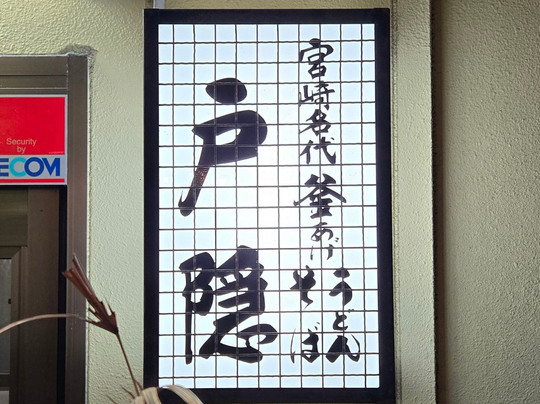 宮崎名代 釜あげ うどん
そば
戸隠
Security
by
ECOM